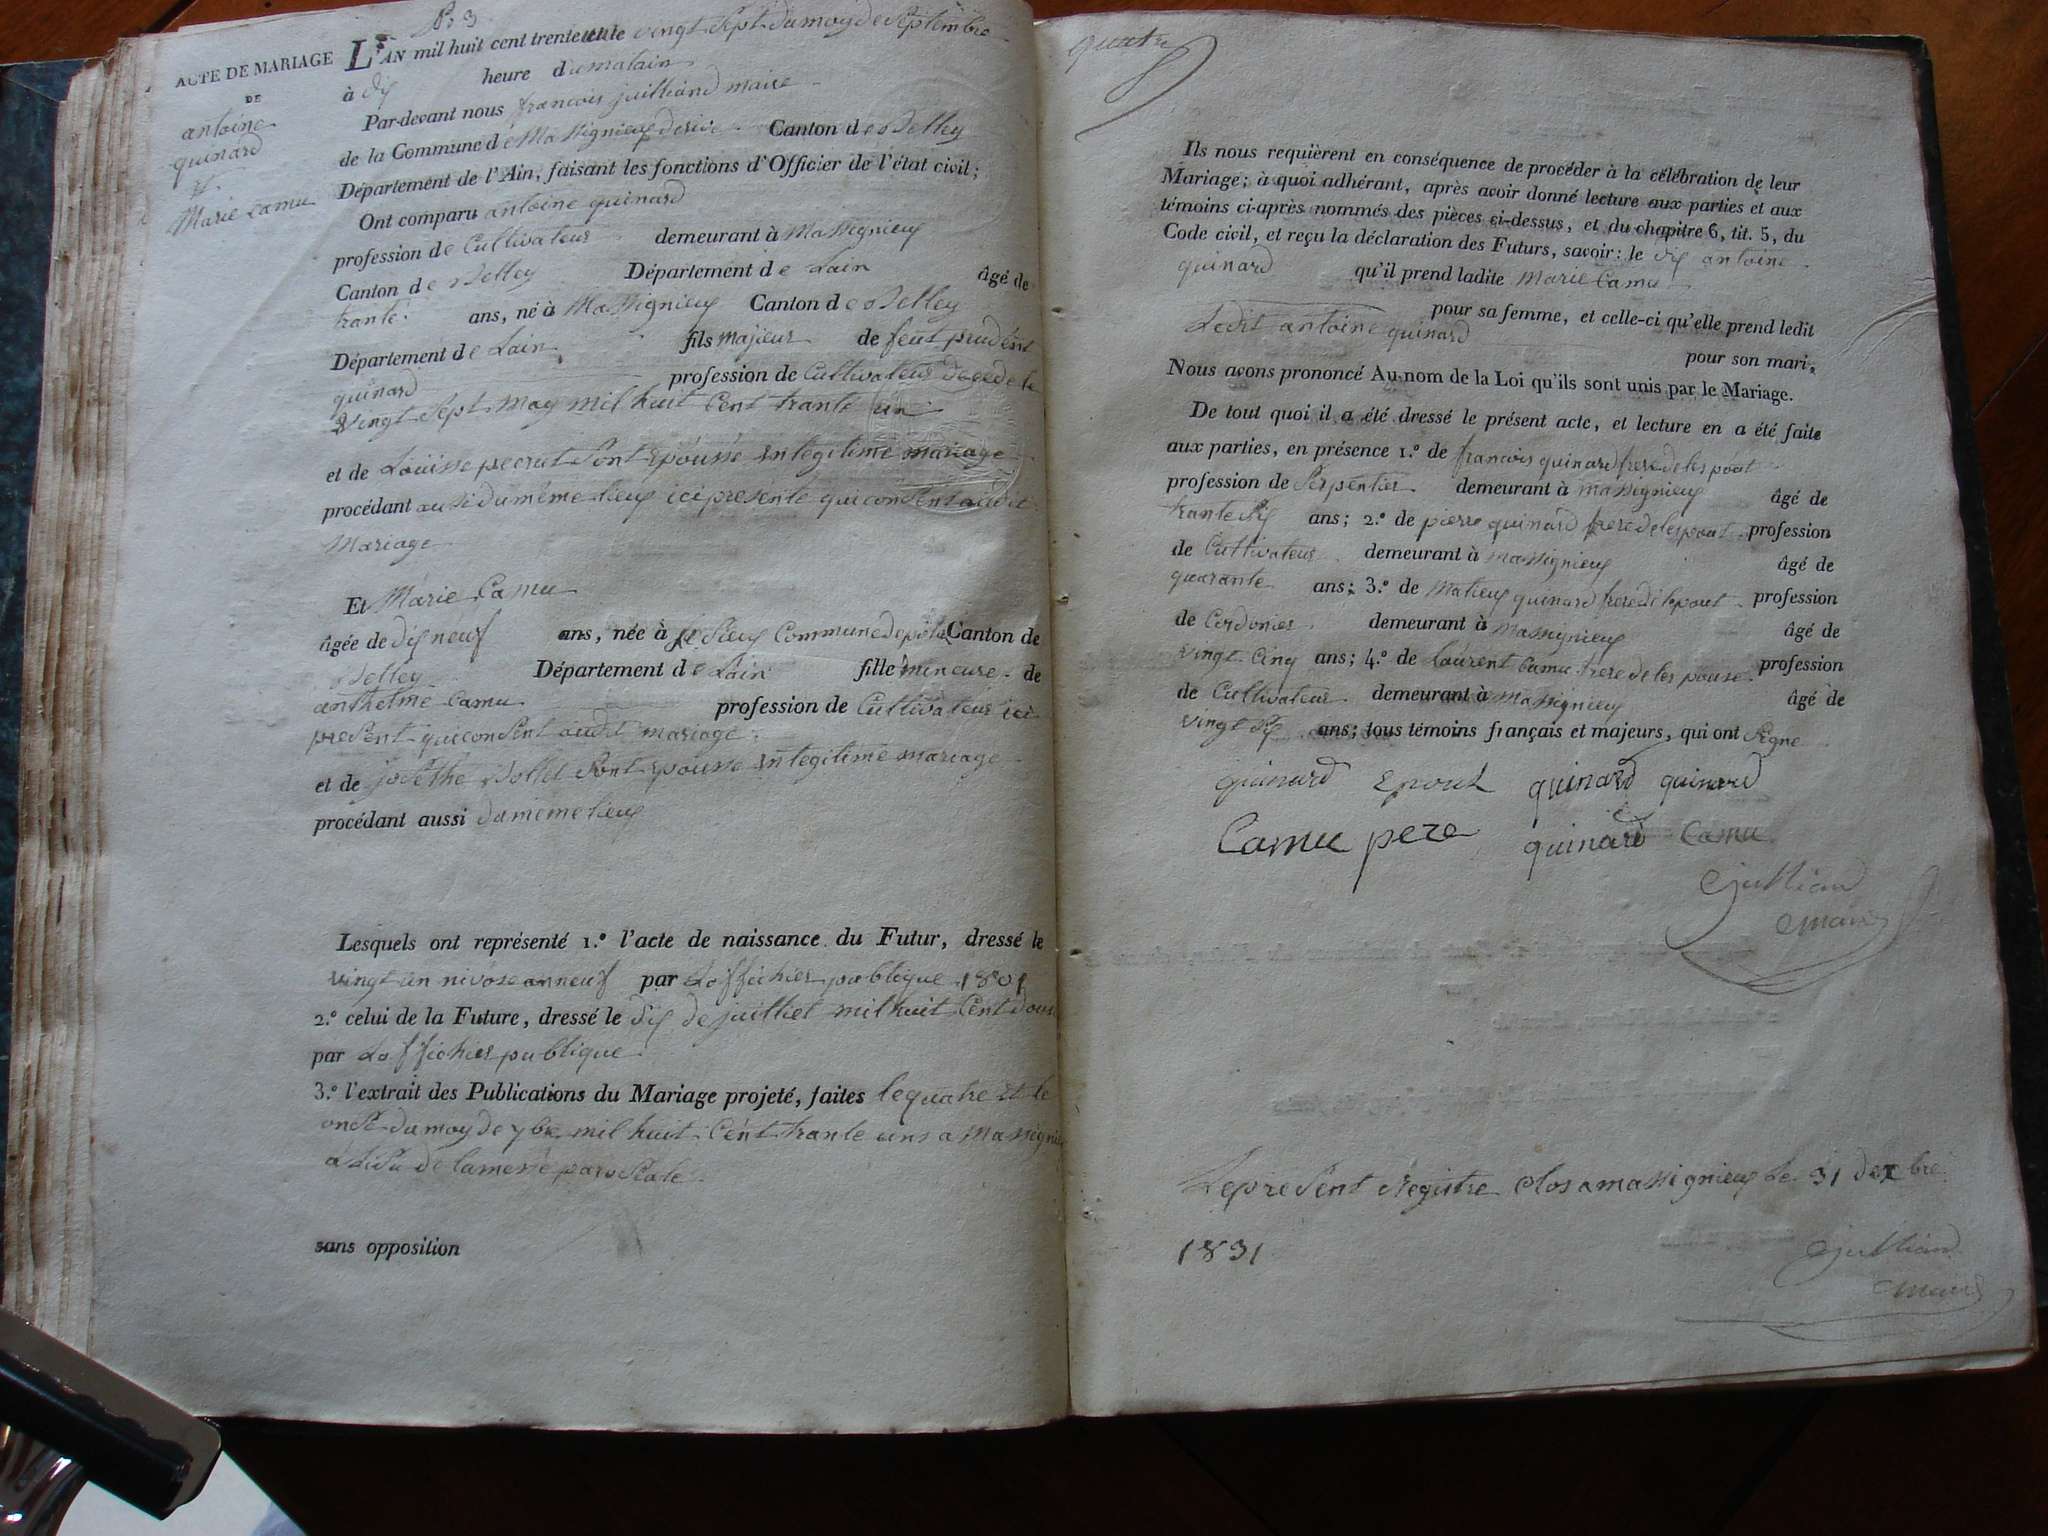 n.° 3
ACTE DE MARIAGE
DE
antoine
quinard
et
Marie Camu
L'AN mil huit cent trente un le vingt Sept du moy de Septembre
à dix heure du matain
Par-devant nous francois juilliand maire
de la Commune de Massignieux derive Canton de Belley
Département de l'Ain, faisant les fonctions d'Officier de l'état civil;
Ont comparu antoine quinard
profession de Cultivateur demeurant à Massignieux
Canton de Belley Département de Lain âgé de
trante ans, né à Massignieux Canton de Belley
Département de Lain fils majeur de feut prudent
quinard profession de Cultivateur decede le
Vingt Sept May mil huit Cent trante un
et de Louisse pecrut Sont Epousse En legitime mariage
procédant aussi du même lieux ici presente qui consent audit
Mariage
Et Marie Camu
âgée de dix neuf ans, née à Sieux Commune de Canton de
Belley Département de Lain fille mineure de
anthelme Camu profession de Cultivateur ici
present qui consent audit mariage
et de josethe Bollet Sont Epousse En legitime mariage
procédant aussi du meme lieux
Lesquels ont représenté 1.° l'acte de naissance du Futur, dressé le
vingt un nivose an neuf par Loffichier publique 1801
2.° celui de la Future, dressé le dix de juilliet mil huit Cent douse
par Loffichier publique
3.° l'extrait des Publications du Mariage projeté, faites le quatre et le
onse du moy de 7bre mil huit Cent trante uns a Massignieu
a de la messe paroseale
sans opposition
quatre
Ils nous requièrent en conséquence de procéder à la célébration de leur
Mariage; à quoi adhérant, après avoir donné lecture aux parties et aux
témoins ci-après nommés des pièces ci-dessus, et du chapitre 6, tit. 5, du
Code civil, et reçu la déclaration des Futurs, savoir: le dit antoine
quinard qu'il prend ladite Marie Camu
pour sa femme, et celle-ci qu'elle prend ledit
Ledit antoine quinard pour son mari,
Nous avons prononcé Au nom de la Loi qu'ils sont unis par le Mariage.
De tout quoi il a été dressé le présent acte, et lecture en a été faite
aux parties, en présence 1.° de francois quinard frere de les pout
profession de Serpentier demeurant à massignieux âgé de
trante six ans; 2.° de pierre quinard frere de les pout profession
de Cultivateur demeurant à massignieux âgé de
quarante ans; 3.° de Matieux quinard frere de lepout profession
de Cordonier demeurant à Massignieux âgé de
vingt Cinq ans; 4.° de laurent Camu frere de les pouse profession
de Cultivateur demeurant à Massignieux âgé de
vingt six ans; tous témoins français et majeurs, qui ont Signe
quinard Epout quinard quinard
Camu pere quinard Camu
juilliand
maire
Le present Registre Clos a massignieux le 31 decebre
1831
juilliand
maire